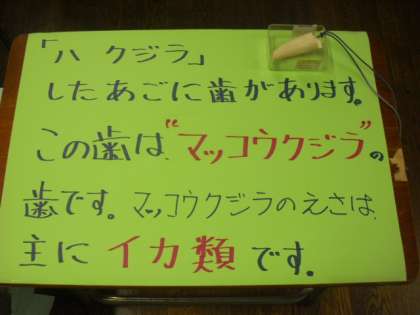 「ハ クジラ」
したあごに歯があります。
この歯は"マッコウクジラ"の
歯です。マッコウクジラのえさは、
主にイカ類です。